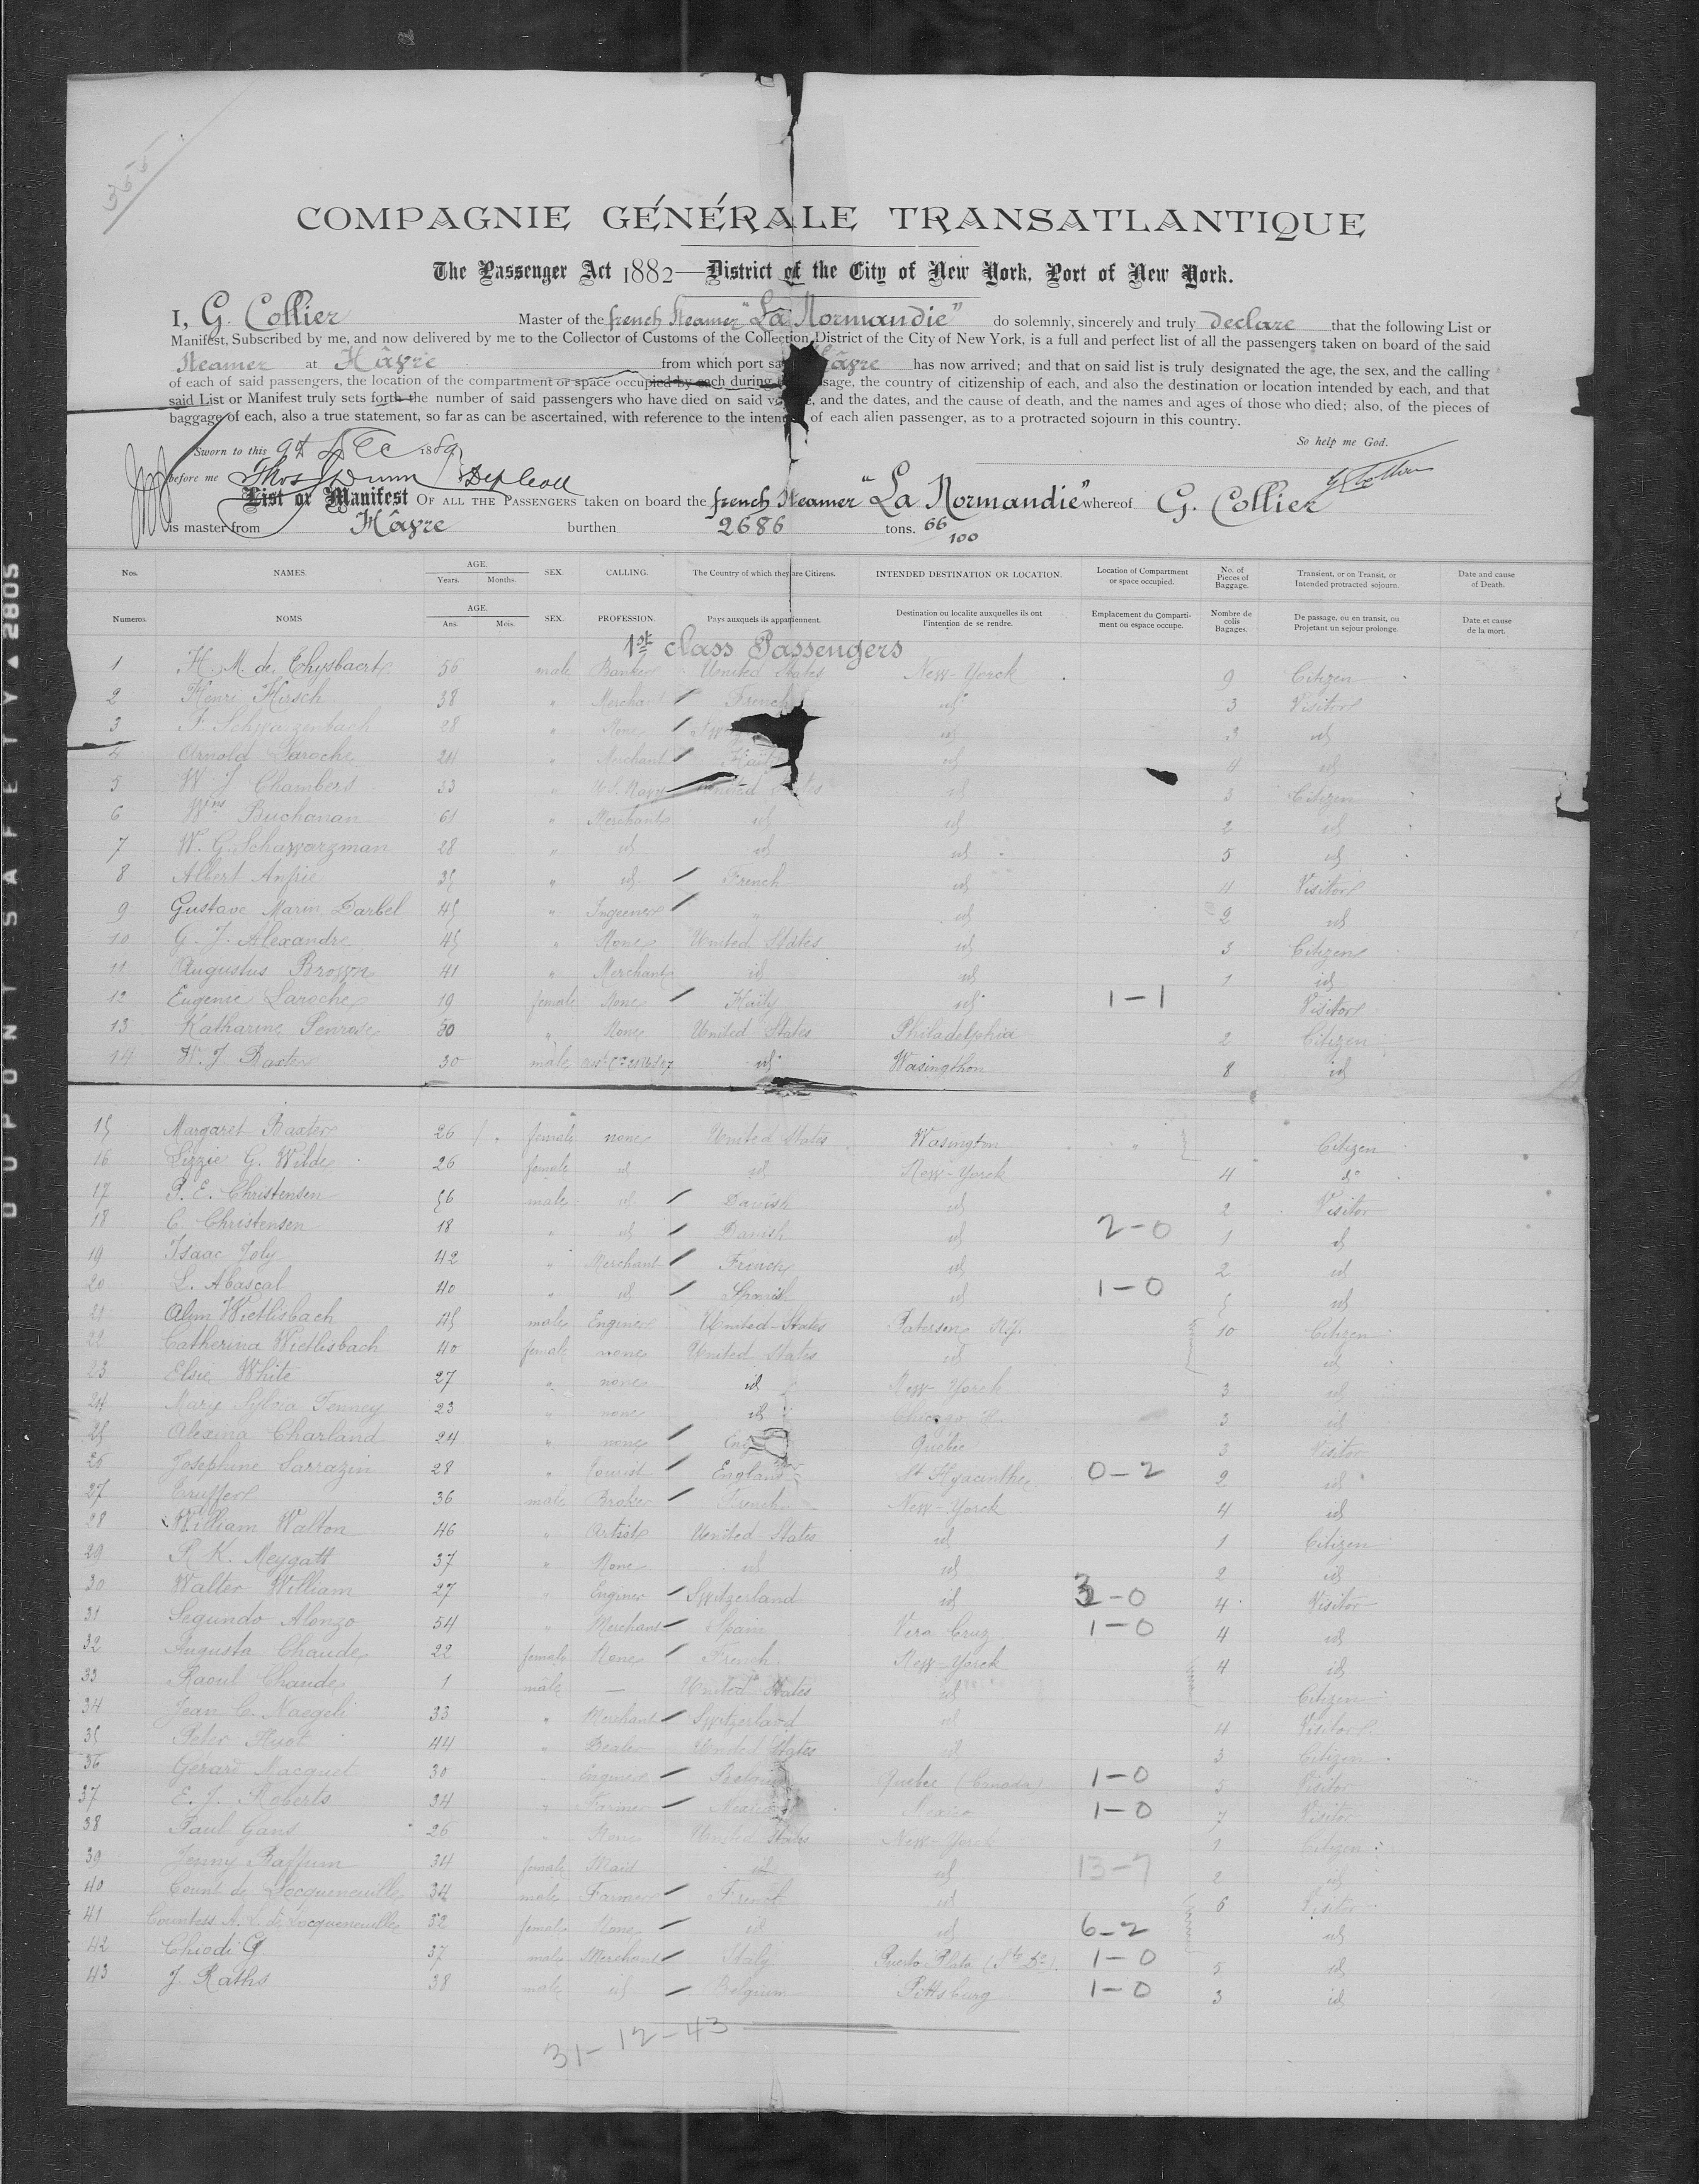 COMPAGNIE GÉNÉRALE TRANSATLANTIQUE
The Passenger Act 1882—District of the City of New York, Port of New York.
I, G. Collier Master of the french Steamer "La Normandie" do solemnly, sincerely and truly declare that the following List or
Manifest, Subscribed by me, and now delivered by me to the Collector of Customs of the Collection District of the City of New York, is a full and perfect list of all the passengers taken on board of the said
Steamer at Hâvre from which port Hâvre has now arrived; and that on said list is truly designated the age, the sex, and the calling
of each of said passengers, the location of the compartment or space occupied by each during the passage, the country of citizenship of each, and also the destination or location intended by each, and that
said List or Manifest truly sets forth the number of said passengers who have died on said voyage, and the dates, and the cause of death, and the names and ages of those who died; also, of the pieces of
baggage of each, also a true statement, so far as can be ascertained, with reference to the intention of each alien passenger, as to a protracted sojourn in this country.
Sworn to this 9th Dec 1889 So help me God.
before me Thos Dunn Dep Coll G Collier
List or Manifest OF ALL THE PASSENGERS taken on board the french Steamer "La Normandie" whereof G. Collier
is master from Hâvre burthen 2686 tons. 66/100
Nos. NAMES. AGE. Years. Months. SEX. CALLING. The Country of which they are Citizens. INTENDED DESTINATION OR LOCATION. Location of Compartment or space occupied. No. of Pieces of Baggage. Transient, or on Transit, or Intended protracted sojourn. Date and cause of Death.
Numeros. NOMS AGE. Ans. Mois. SEX. PROFESSION. Pays auxquels ils appartiennent. Destination ou localite auxquelles ils ont l'intention de se rendre. Emplacement du Compartiment ou espace occupe. Nombre de colis Bagages. De passage, ou en transit, ou Projetant un sejour prolonge. Date et cause de la mort.
1st class Passengers
1 H. M. de Thysbaert 56 male Banker United States New-Yorck 9 Citizen
2 Henri Hirsch 38 " Merchant French id 3 Visitor
3 F. Schwarzenbach 28 " None id 3 id
4 Arnold Laroche 24 " Merchant Haiti id 4 id
5 W J Chambers 33 " U.S. Navy United States id 3 Citizen
6 Wm Buchanan 61 " Merchant id id 2 id
7 W. G. Schawarzman 28 " id id id 5 id
8 Albert Anfrie 35 " id French id 4 Visitor
9 Gustave Marin Darbel 45 " Ingeneer " id 2 id
10 G. J. Alexandre 45 " None United States id 3 Citizen
11 Augustus Brown 41 " Merchant id id 1 id
12 Eugenie Laroche 19 female None Haity id 1-1 Visitor
13 Katharine Penrose 50 " None United States Philadelphia 2 Citizen
14 W. J. Baxter 30 male id Wasingthon 8 id
15 Margaret Baxter 26 female none United States Wasington " Citizen
16 Lizzie G. Wilde 26 female id id New-Yorck 4 do
17 P. E. Christensen 56 male id Danish id 2 Visitor
18 C. Christensen 18 " id Danish id 2-0 1 id
19 Isaac Joly 42 " Merchant French id 2 id
20 L. Abascal 40 " id Spanish id 1-0 5 id
21 Alim Wietlisbach 45 male Engineer United-States Paterson N.J. 10 Citizen
22 Catherina Wietlisbach 40 female none United States id id
23 Elsie White 27 " none id New-Yorck 3 id
24 Mary Sylvia Tenney 23 " none id Chicago 3 id
25 Alexina Charland 24 " none Quebec 3 Visitor
26 Josephine Sarrazin 28 " tourist England St Hyacinthe 0-2 2 id
27 Truffer 36 male Broker French New-Yorck 4 id
28 William Walton 46 " Artist United States id 1 Citizen
29 R K. Meygatt 37 " None id id 2 id
30 Walter William 27 " Engineer Switzerland id 3-0 4 Visitor
31 Segundo Alonzo 54 " Merchant Spain Vera Cruz 1-0 4 id
32 Augusta Chaude 22 female None French New-Yorck 4 id
33 Raoul Chaude 1 male — United States id Citizen
34 Jean C. Naegeli 33 " Merchant Switzerland id 4 Visitor
35 Peter Huot 44 " Dealer United States id 3 Citizen
36 Gerard Macquet 30 " Engineer Quebec (Canada) 1-0 5 Visitor
37 E. J. Roberts 34 " Farmer Mexico Mexico 1-0 7 Visitor
38 Paul Gans 26 " None United States New-Yorck 1 Citizen
39 Jenny Baffum 34 female Maid id id 13-7 2 id
40 Count de Locqueneuille 34 male Farmer French id 6 Visitor
41 Countess A. L. de Locqueneuille 32 female None id id 6-2 id
42 Chiodi G 37 male Merchant Italy Puerto Plata (Sto Do). 1-0 5 id
43 J. Raths 38 male id Belgium Pittsburg 1-0 3 id
31-12-43
DUPONT SAFETY ▲ 2805